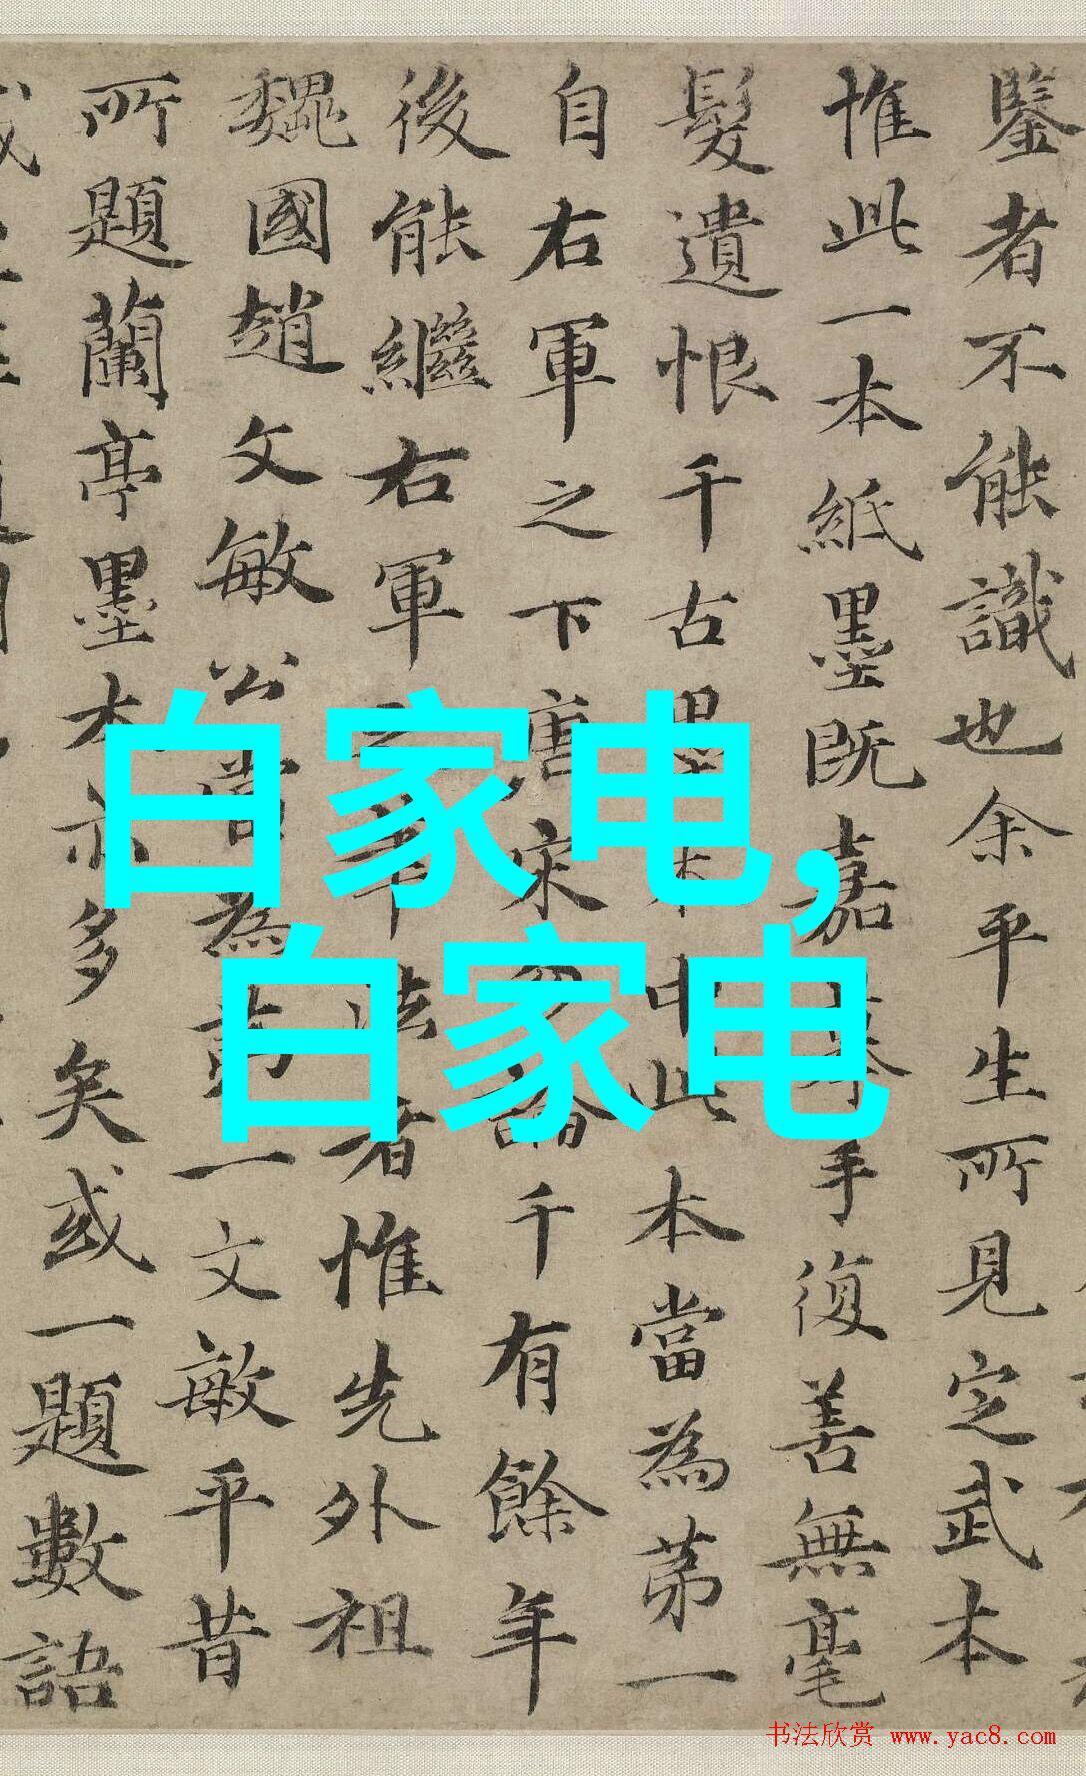 鑒者不能識也余平生所見定武本
惟此一本紙墨既嘉摹手復善無毫
髮遺恨千古墨本中此本當為苐一
自右軍之下唐宋論千有餘年
後能繼右軍之筆法者惟先外祖
魏國趙文敏公嘗為一文敏平昔
所題蘭亭墨本亦多矣或一題數語
白家电,
白家电
书法欣赏 www.yac8.com